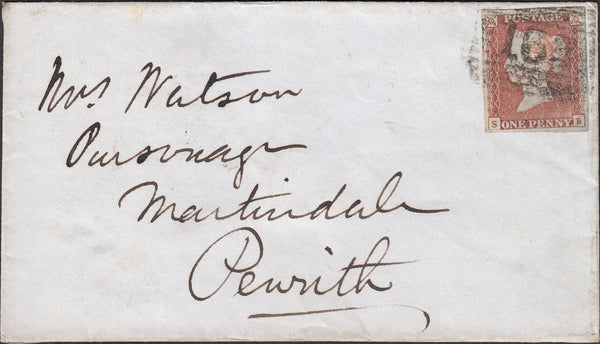 POSTAGE
S ONE PENNY B
Mrs Watson
Parsonage
Martindale
Penrith